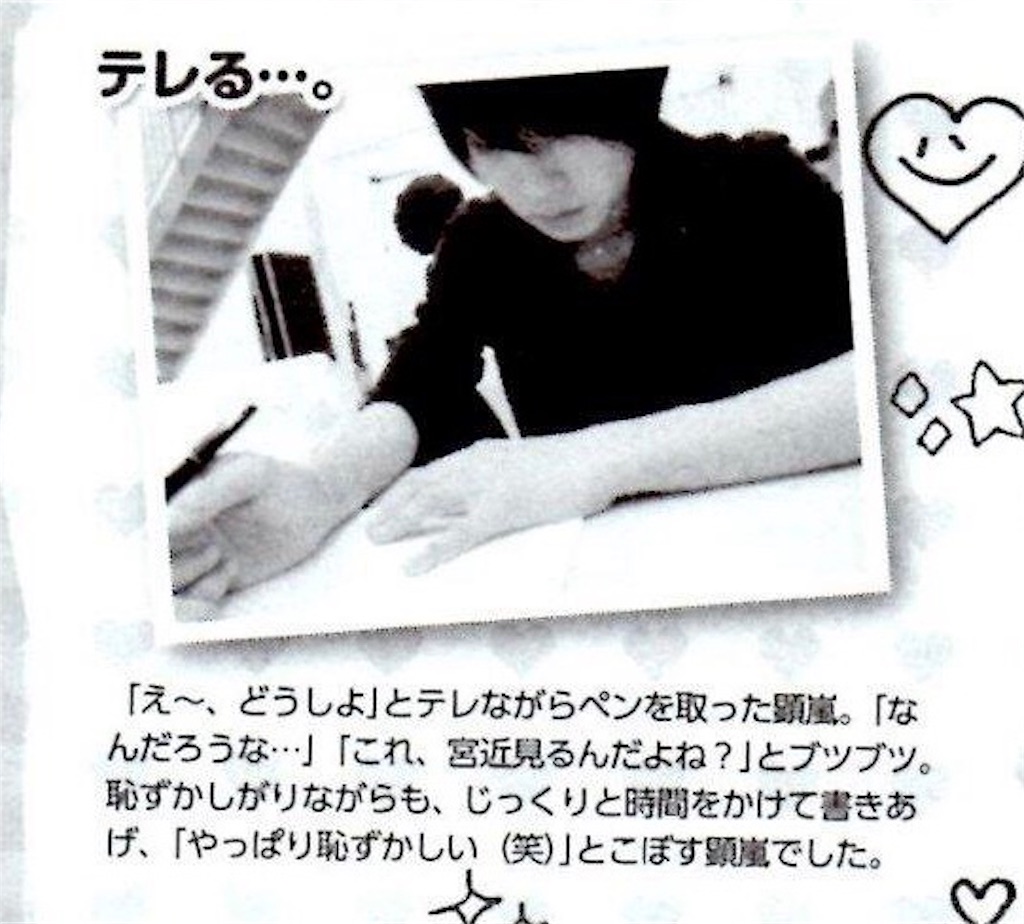 テレる…。
「え～、どうしよ」とテレながらペンを取った顕嵐。「な
んだろうな…」「これ、宮近見るんだよね？」とブツブツ。
恥ずかしがりながらも、じっくりと時間をかけて書きあ
げ、「やっぱり恥ずかしい（笑）」とこぼす顕嵐でした。